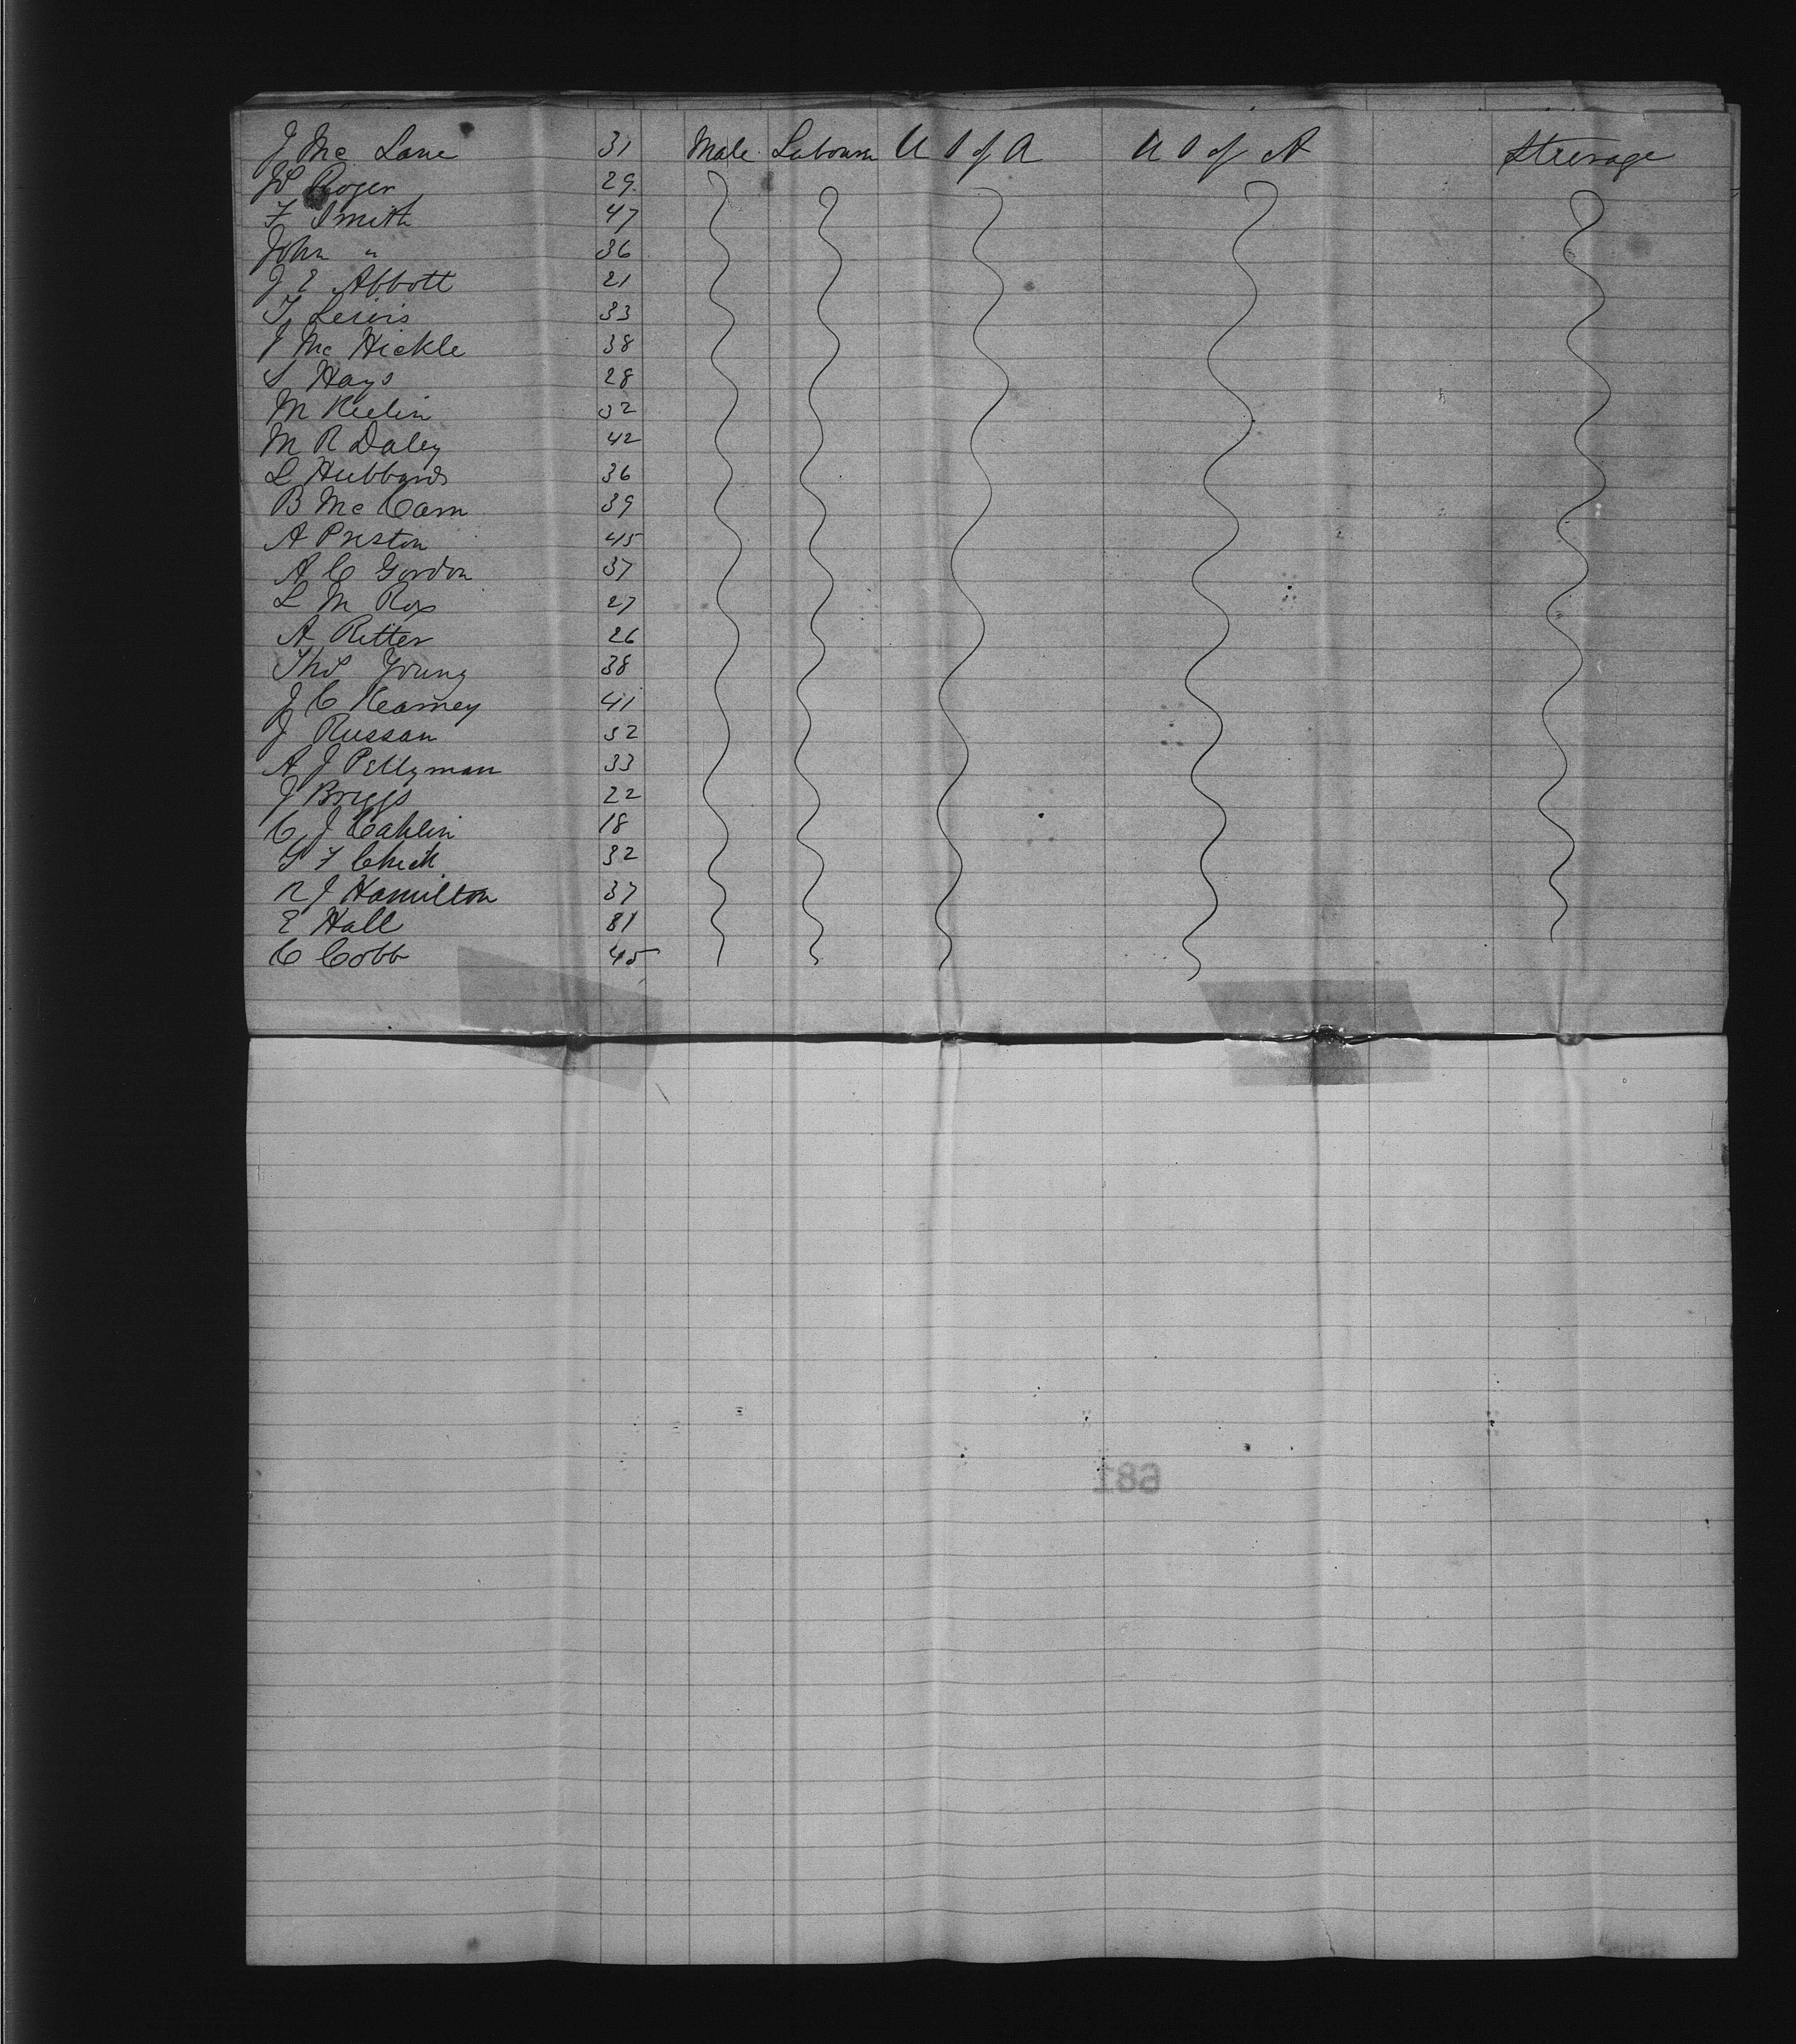 J Mc Lane 31 Male Labourer U S of A U S of A Steerage
W Roger 29
F Smith 47
John " 36
J E Abbott 21
T Lewis 33
J Mc Hickle 38
S Hays 28
M Keelin 32
M R Daley 42
L Hubbards 36
B Mc Cam 39
A Preston 45
A C Gordon 37
L M Rox 27
A Ritter 26
Thos Young 38
J C Kearney 41
J Russan 32
A J Pellyman 33
J Briggs 22
C J Cahlin 18
G F Chick 32
R J Hamilton 37
E Hall 31
C Cobb 45
681